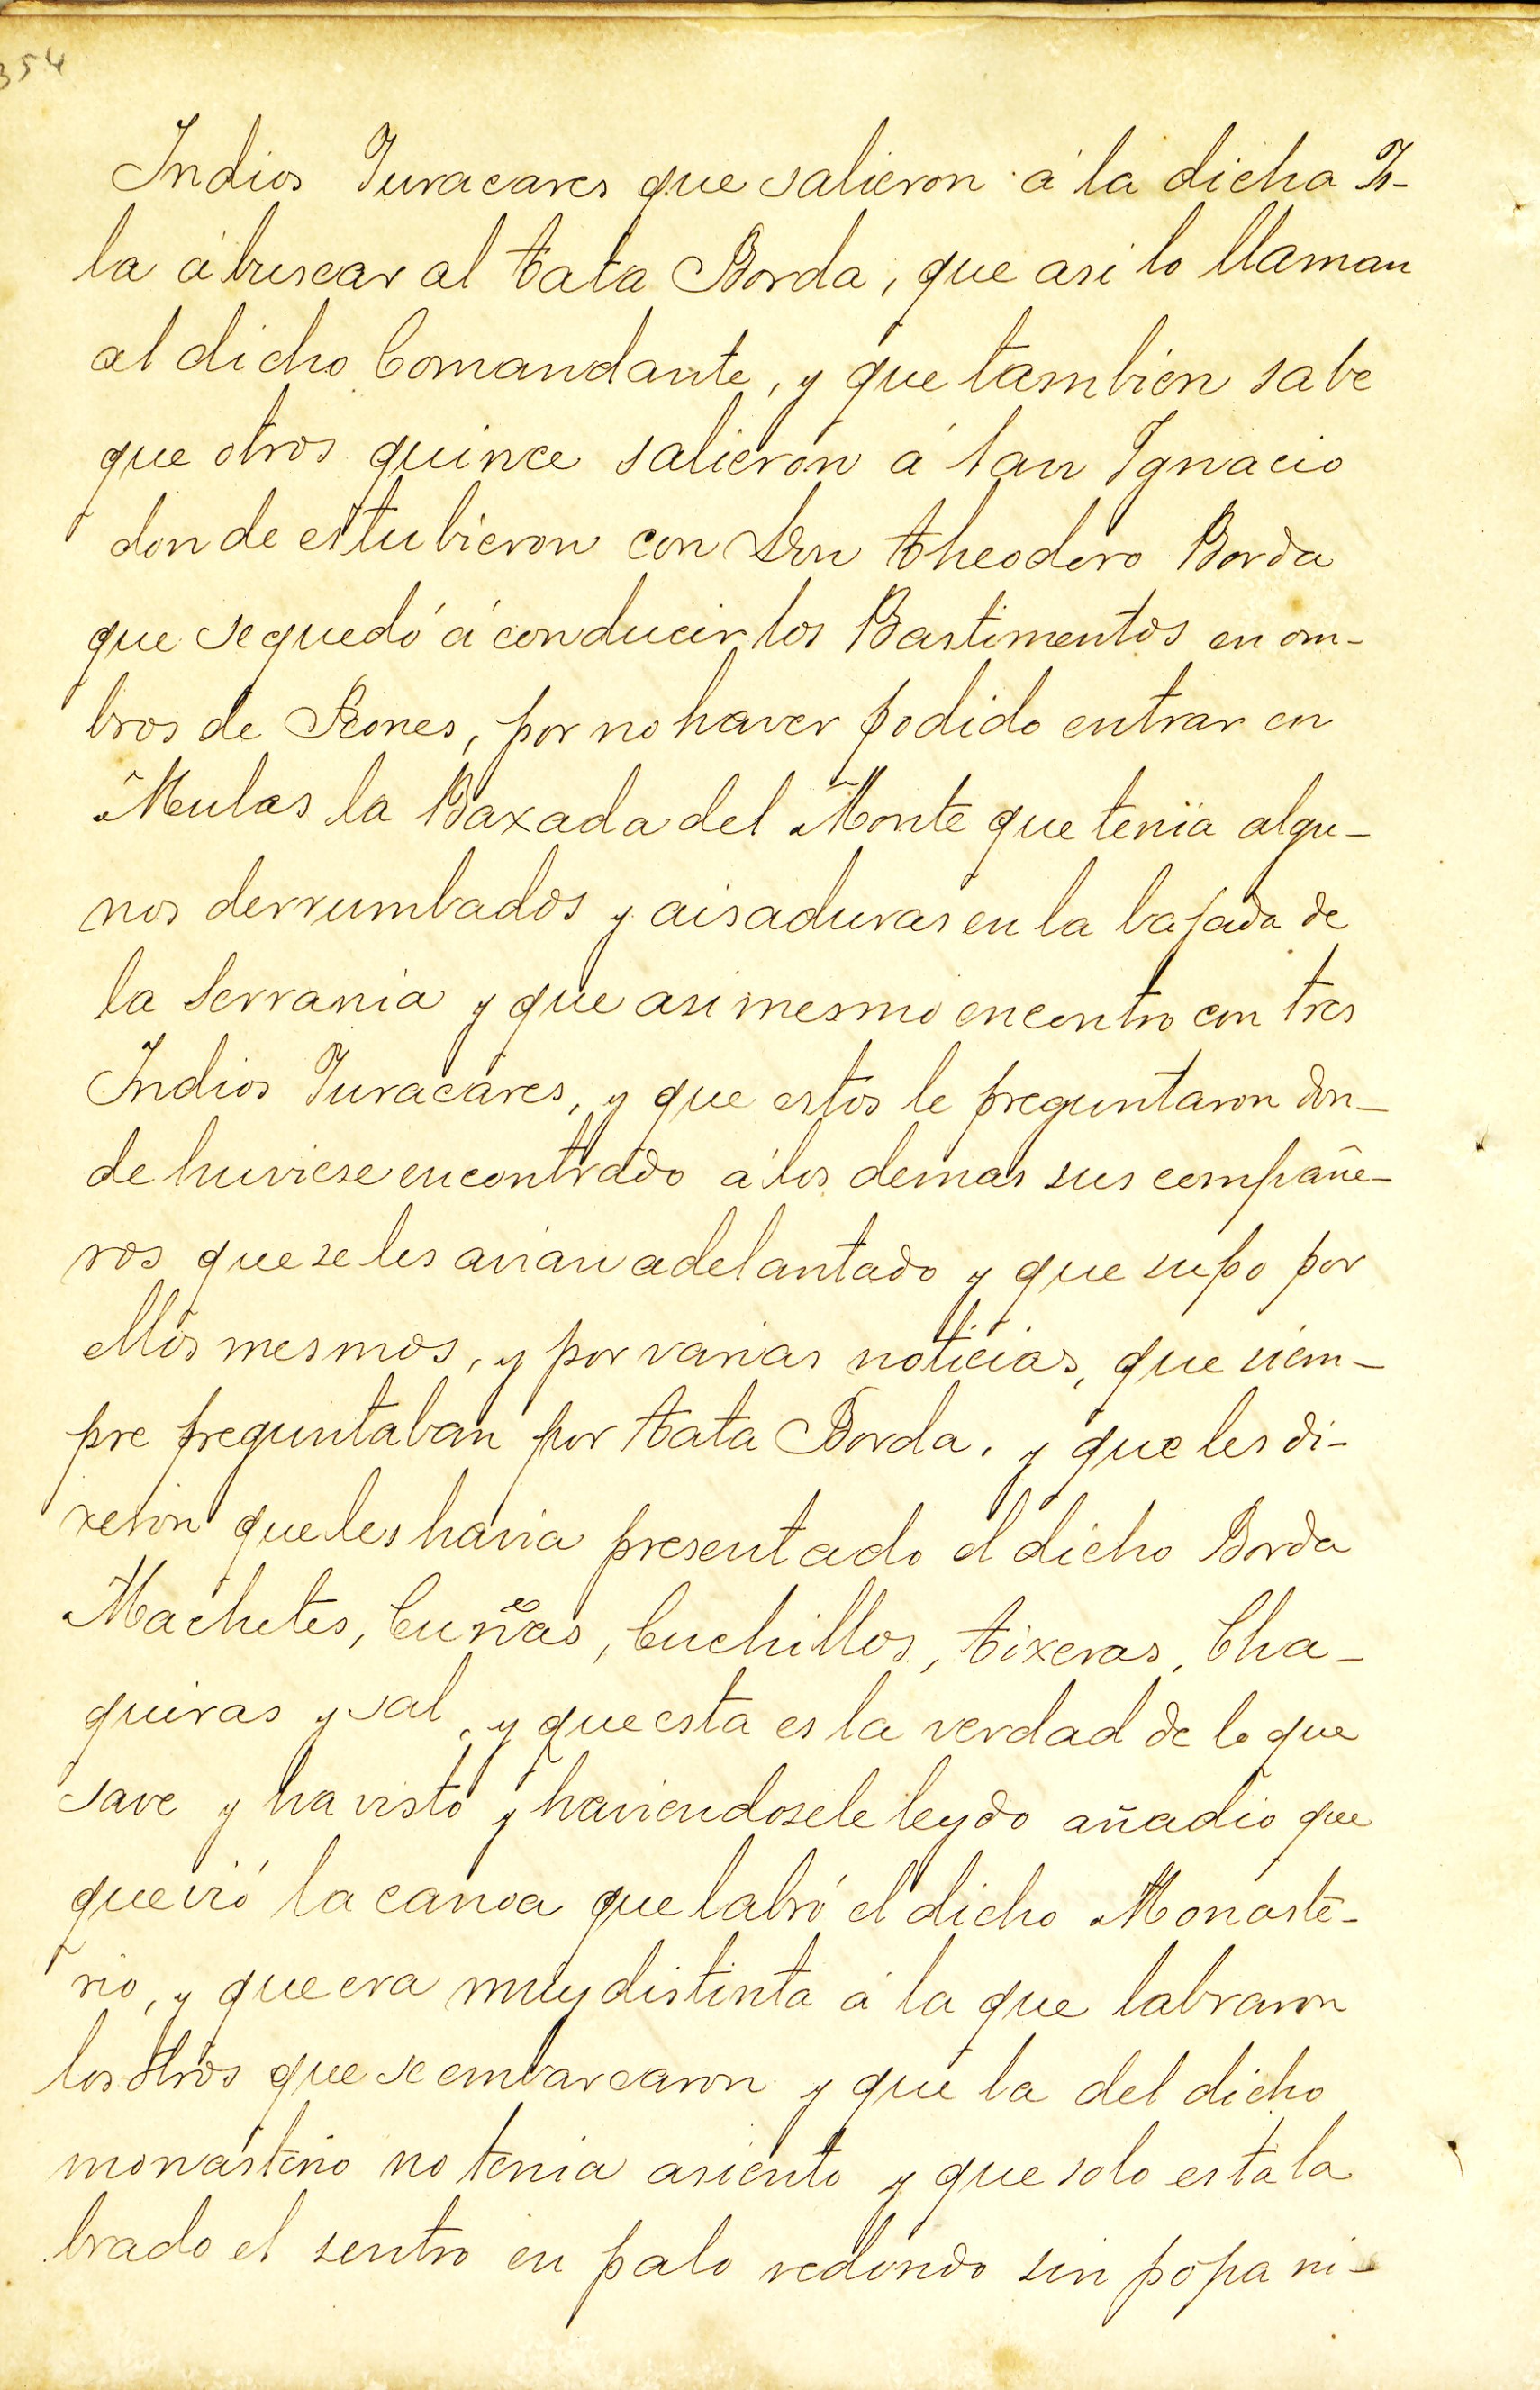 354
Indios Yuracares que salieron á la dicha Is-
la á buscar al tata Borda, que asi lo llaman
al dicho Comandante, y que tambien sabe
que otros quince salieron á San Ygnacio
donde estubieron con Don Theodoro Borda
que se quedó á conducir los Bastimentos en om-
bros de Peones, por no haver podido entrar en
Mulas la Baxada del Monte que tenia algu-
nos derrumbados y aisaduras en la bajada de
la Serrania y que asi mesmo encontro con tres
Indios Yuracáres, y que estos le preguntaron don-
de huviese encontrado á los demas sus compañe-
ros que se les avian adelantado y que supo por
ellos mesmos, y por varias noticias, que siem-
pre preguntaban por tata Borda, y que les di-
xeron que les havia presentado el dicho Borda
Machetes, Cuñas, Cuchillos, tixeras, Cha-
quiras y sal, y que esta es la verdad de lo que
save y ha visto y haviendosele leydo añadio que
que vió la canoa que labró el dicho Monaste-
rio, y que era muy distinta á la que labraron
los otros que se embarcaron y que la del dicho
monasterio no tenia asiento y que solo esta la
brado el sentro en palo redondo sin popa ni-